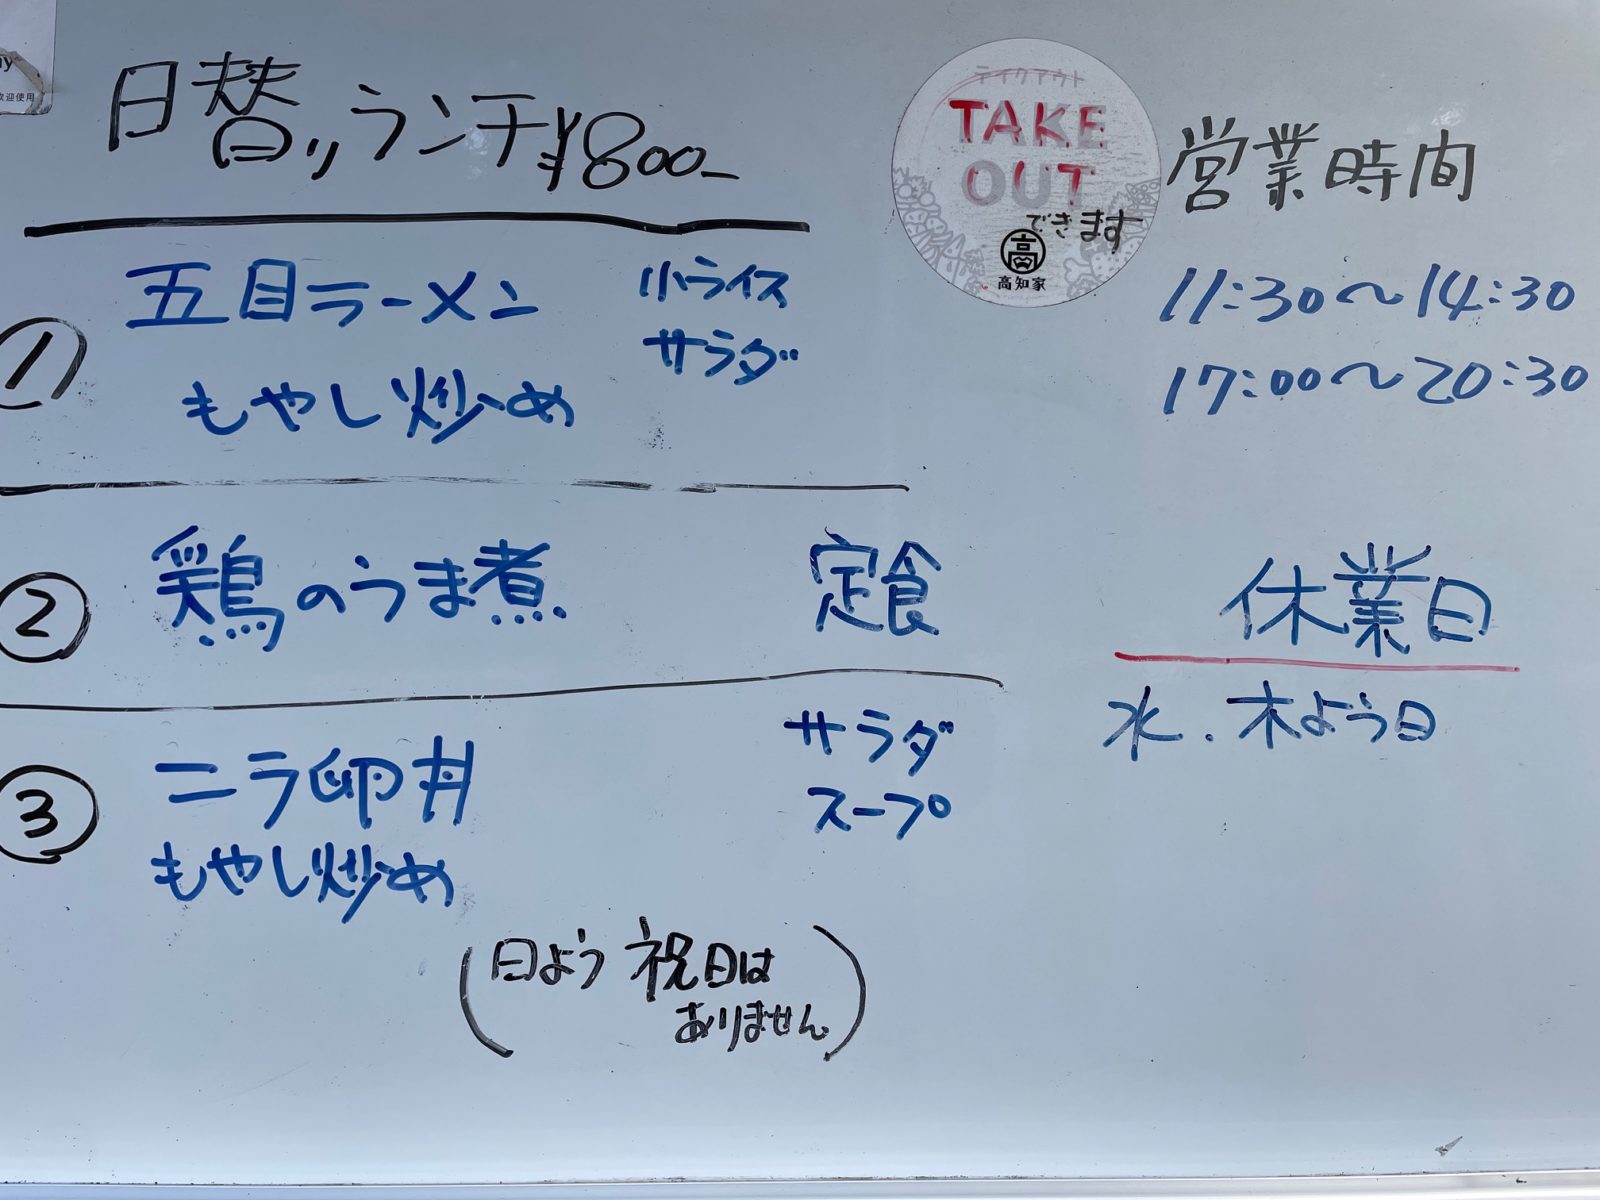 日替りランチ¥800-
① 五目ラーメン 小ライス
サラダ
もやし炒め
② 鶏のうま煮 定食
③ ニラ卵丼 サラダ
スープ
もやし炒め
(日よう 祝日は
ありません)
テイクアウト
TAKE
OUT
できます
高
高知家
営業時間
11:30〜14:30
17:00〜20:30
休業日
水.木よう日
歓迎使用